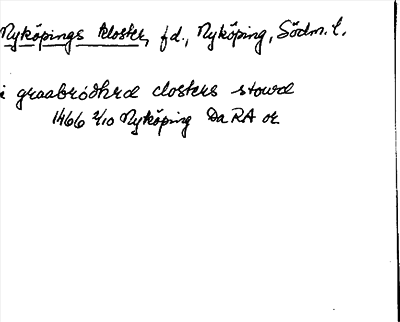 Nyköpings kloster, f d., Nyköping, Södm. l.
i graabrödhra closters stowa
1466 2/10 Nyköping Da RA or